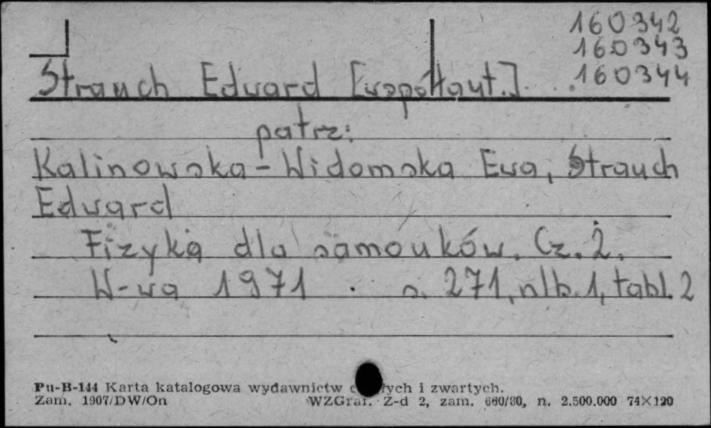 160342
160343
Strauch Edward [współaut.] 160344
patrz:
Kalinowska-Widomska Ewa, Strauch
Edward
Fizyka dla samouków. Cz. 2.
W-wa 1971 . s. 271, nlb. 1, tabl. 2
Pu-B-144 Karta katalogowa wydawnictw ciągłych i zwartych.
Zam. 1907/DW/On WZGraf. Z-d 2, zam. 680/80, n. 2.500.000 74×120